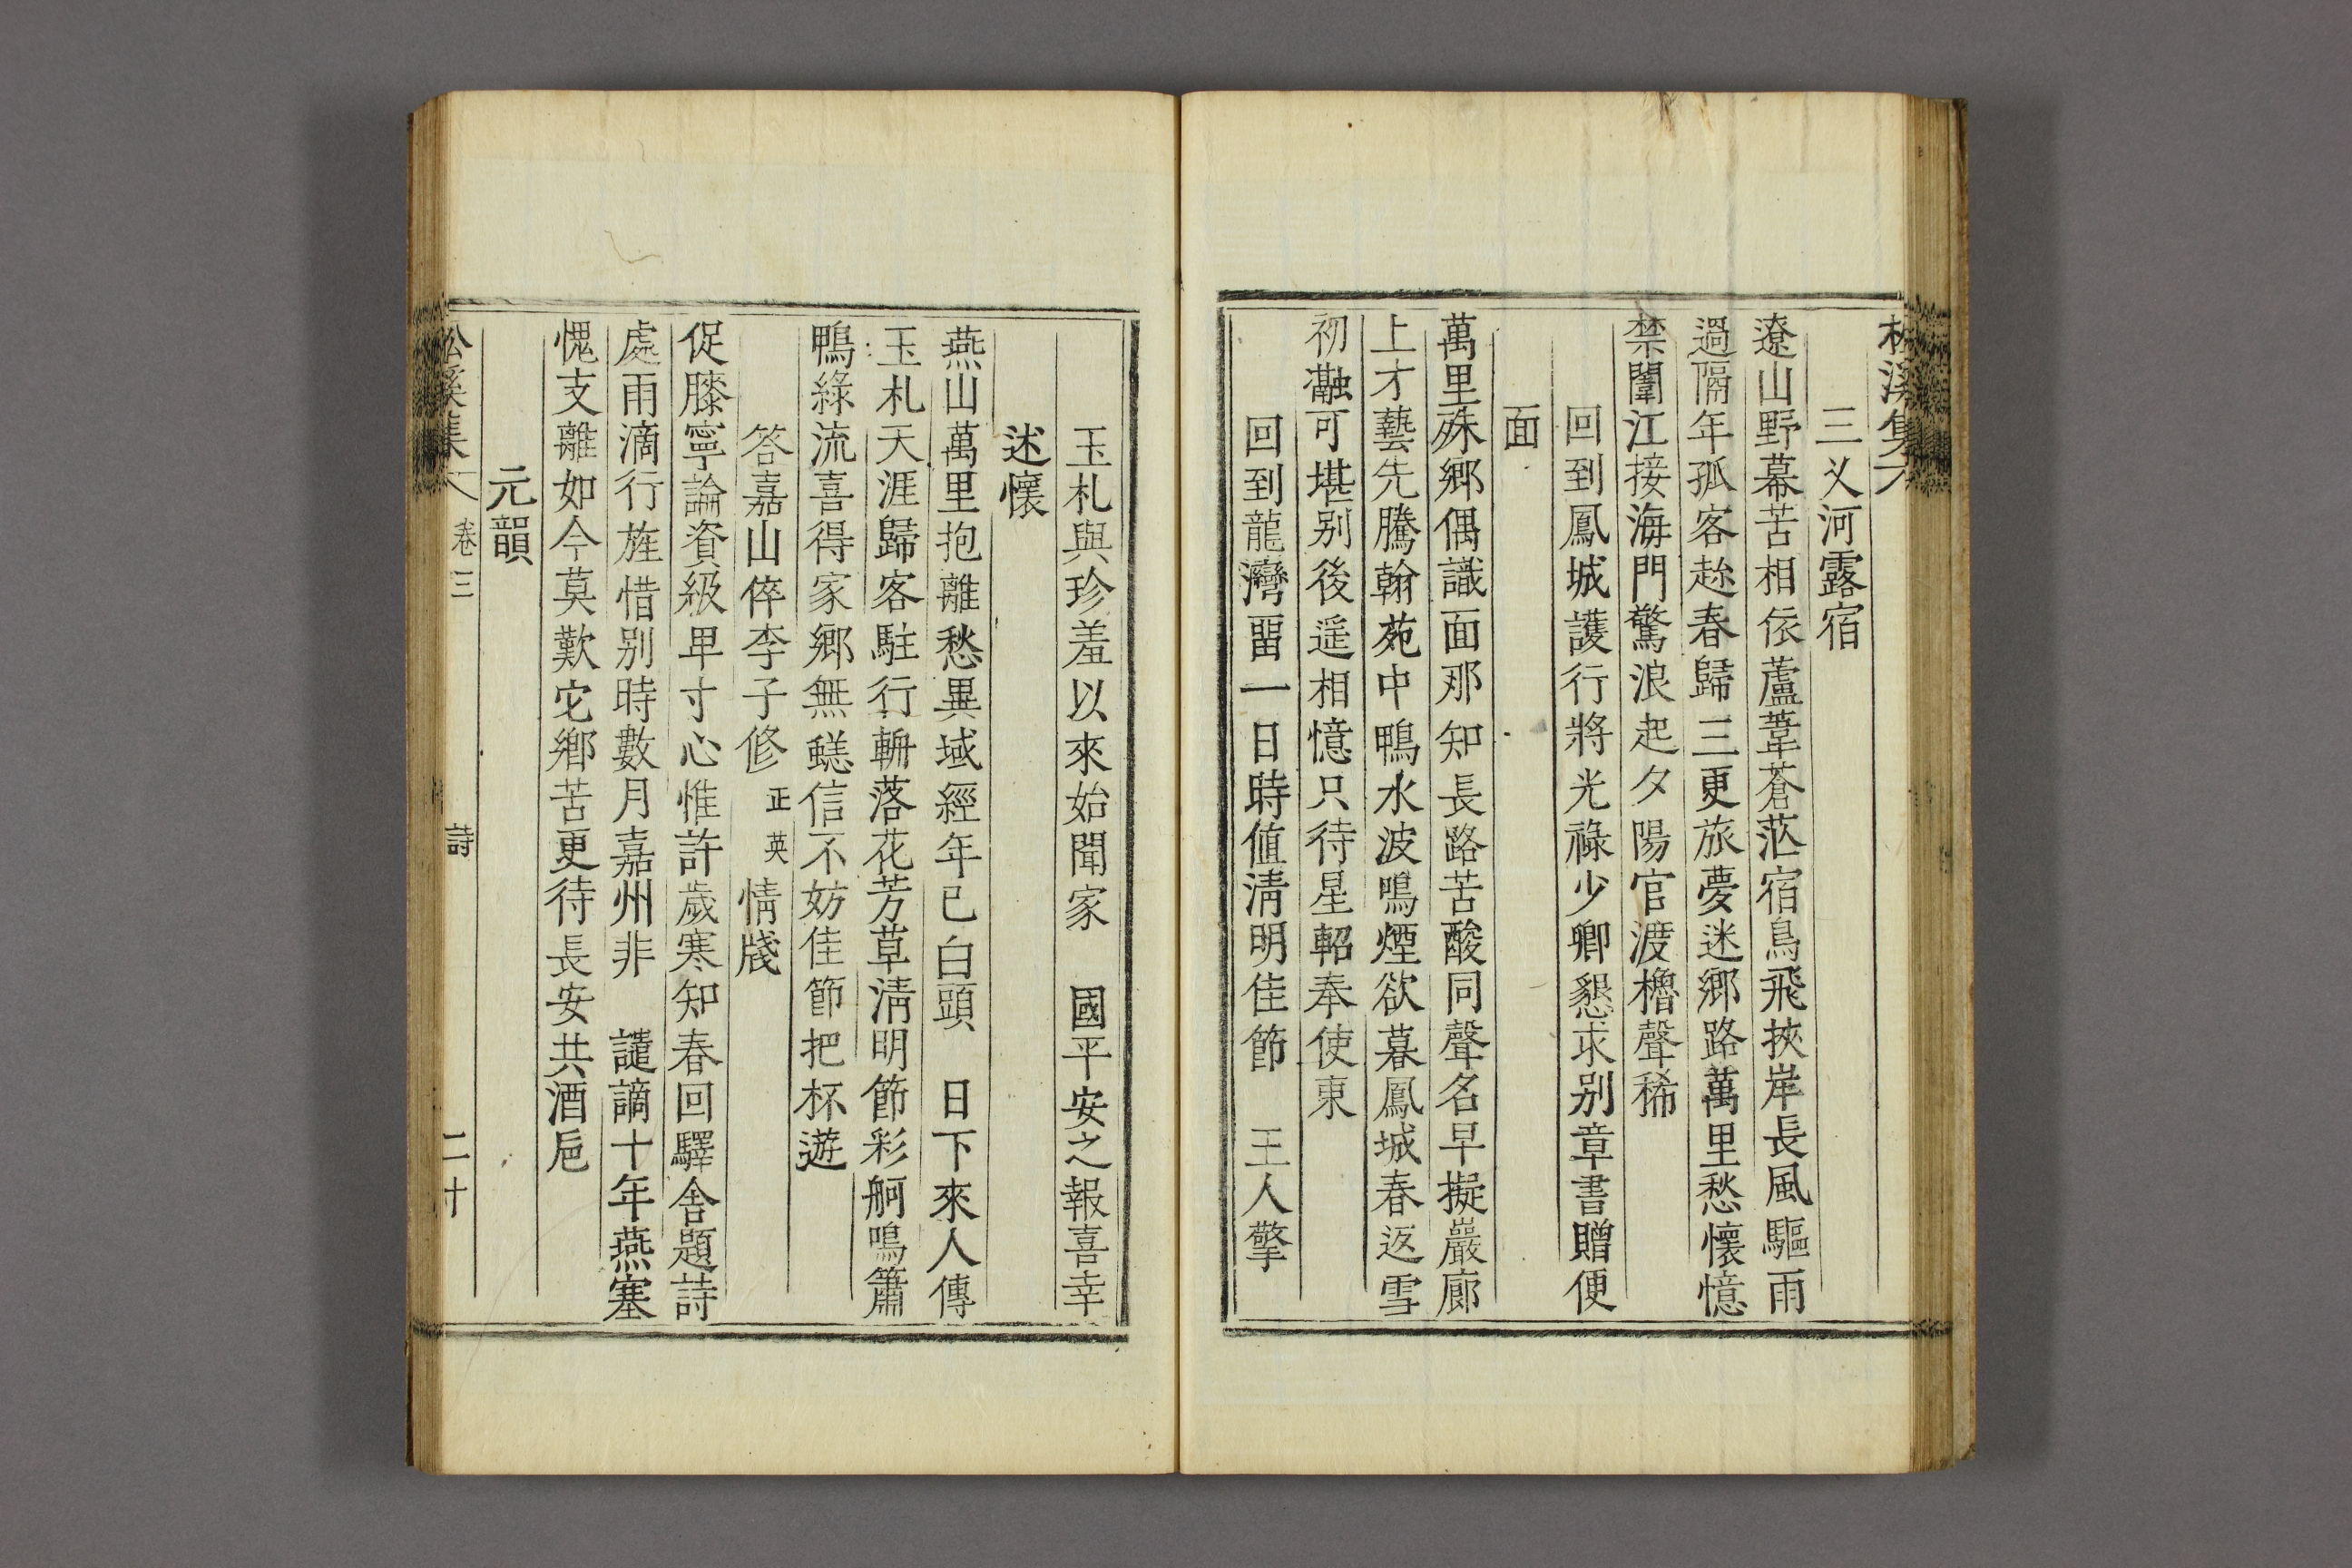 松溪集
三乂河露宿
遼山野幕苦相依蘆葦蒼茫宿鳥飛挾岸長風驅雨
過隔年孤客趂春歸三更旅夢迷鄉路萬里愁懷憶
禁闈江接海門驚浪起夕陽官渡櫓聲稀
回到鳳城護行將光祿少卿懇求别章書贈便
面
萬里殊鄉偶識面那知長路苦酸同聲名早擬巖廊
上才藝先騰翰苑中鴨水波鳴煙欲暮鳳城春返雪
初瀜可堪别後遥相憶只待星軺奉使東
回到龍灣畱一日時值淸明佳節 王人擎
玉札與珍羞以來始聞家 國平安之報喜幸
述懷
燕山萬里抱離愁異域經年已白頭 日下來人傳
玉札天涯歸客駐行輈落花芳草淸明節彩舸鳴簫
鴨綠流喜得家鄉無恙信不妨佳節把杯遊
答嘉山倅李子修 正英 情牋
促膝寧論資級卑寸心惟許歲寒知春回驛舍題詩
處雨滴行旌惜别時數月嘉州非 譴謫十年燕塞
愧支離如今莫歎它鄕苦更待長安共酒巵
元韻
松溪集 卷三 詩 二十